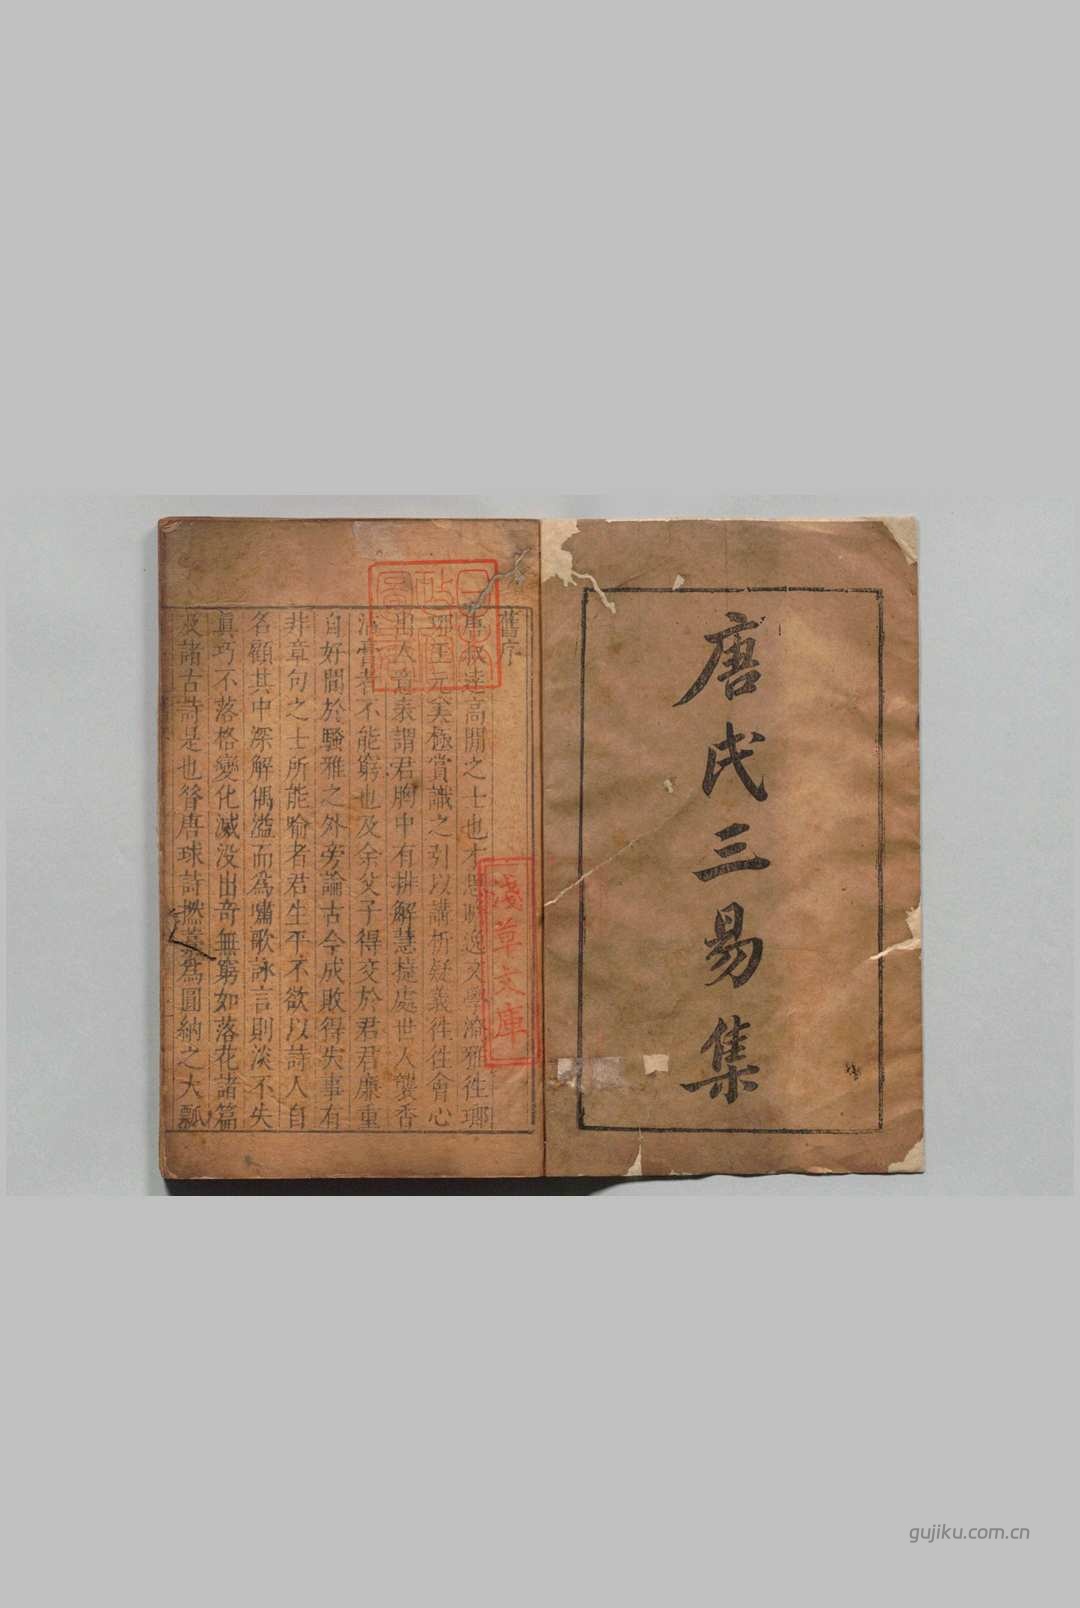 唐氏三易集
舊序
唐叔達高閒之士也才思雋逸文學淵雅徃瑯
琊王元美極賞識之引以講析疑義徃徃會心
出人意表謂君胸中有排解慧捷處世人襲香
者不能窮也及余父子得交於君君廉重
自好間於騷雅之外旁論古今成敗得失事有
非章句之士所能喻者君生平不欲以詩人自
名顧其中深解偶溢而為嘯歌詠言則淡不失
真巧不落格變化滅没出奇無窮如落花諸篇
及諸古詩是也昝唐球詩撚藁為圓納之大瓢
淺草文庫
gujiku.com.cn